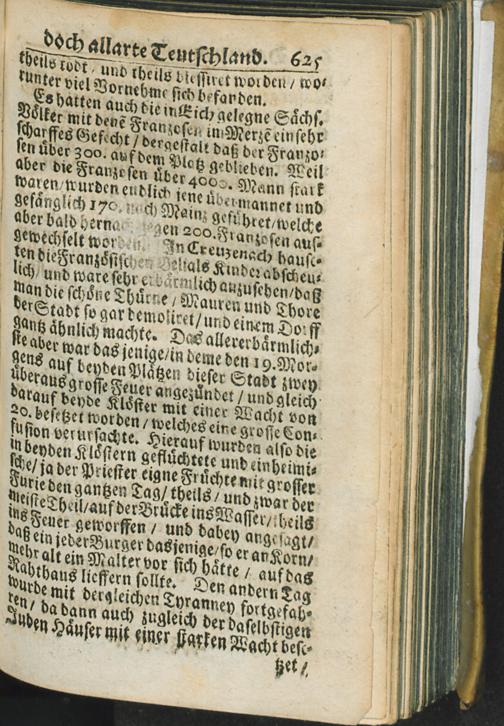 doch allarte Teutschland. 625
theils todt / und theils blessiret worden / wo-
runter viel Vornehme sich befanden.
Es hatten auch die in Eich gelegne Sächs.
Völker mit denē Franzosen im Merzē ein sehr
scharffes Gefecht / dergestalt daß der Franzo-
sen über 300. auf dem Platz geblieben. Weil
aber die Franzosen über 4000. Mann stark
waren / wurden endlich jene übermannet und
gefänglich 170. nach Mainz geführet / welche
aber bald hernach gegen 200. Franzosen aus-
gewechselt worden. In Creuzenach hause-
ten die Französischen Belials Kinder abscheu-
lich / und ware sehr erbärmlich anzusehen / daß
man die schöne Thürne / Mauren und Thore
der Stadt so gar demoliret / und einem Dorff
gantz ähnlich machte. Das allererbärmlich-
ste aber war das jenige / in deme den 19. Mor-
gens auf beyden Plätzen dieser Stadt zwey
überaus grosse Feuer angezündet / und gleich
darauf beyde Klöster mit einer Wacht von
20. besetzet worden / welches eine grosse Con-
fusion verursachte. Hierauf wurden also die
in beyden Klöstern geflüchtete und einheimi-
sche / ja der Priester eigne Früchte mit grosser
Furie den gantzen Tag / theils / und zwar der
meiste Theil / auf der Brücke ins Wasser / theils
ins Feuer geworffen / und dabey angesagt /
daß ein jeder Burger dasjenige / so er an Korn /
mehr alt ein Malter vor sich hätte / auf das
Rahthaus lieffern sollte. Den andern Tag
wurde mit dergleichen Tyranney fortgefah-
ren / da dann auch zugleich der daselbstigen
Juden Häuser mit einer starken Wacht bese-
tzet /